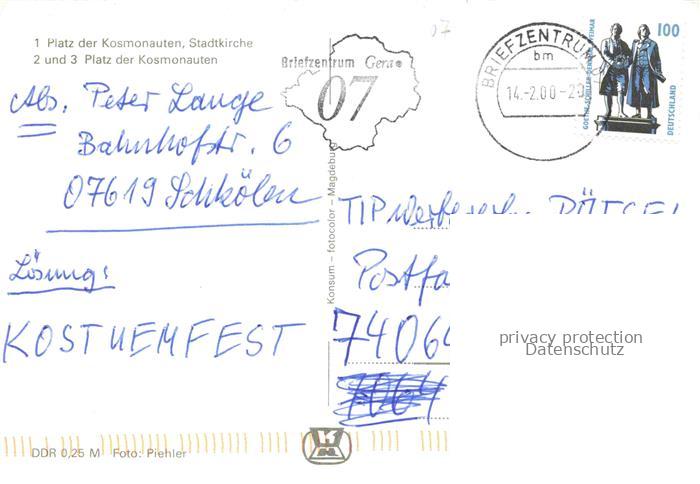 1 Platz der Kosmonauten, Stadtkirche
2 und 3 Platz der Kosmonauten
Abs. Peter Lange
Bahnhofstr. 6
07619 Schkölen
Lösung:
KOSTUEMFEST
DDR 0,25 M Foto: Piehler
Konsum – fotocolor – Magdeburg
07
Briefzentrum Gera
07
BRIEFZENTRUM
bm
14.-2.00-20
100
DEUTSCHLAND
GOETHE-SCHILLER-DENKMAL WEIMAR
TIP
Postfa
74064
privacy protection
Datenschutz